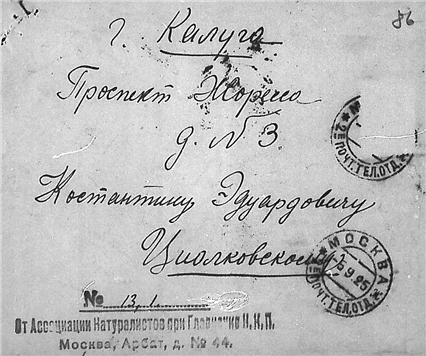 86
г. Калуга
Проспект Жореса
д. N 3
Костантину Эдуардовичу
Циалковскому
2Е ПОЧТ. ТЕЛ. ОТД.
МОСКВА
9 25
ПОЧТ. ТЕЛ. ОТД.
№ 13,1
От Ассоциации Натуралистов при Н. К. П.
Москва, Арбат, д. № 44.